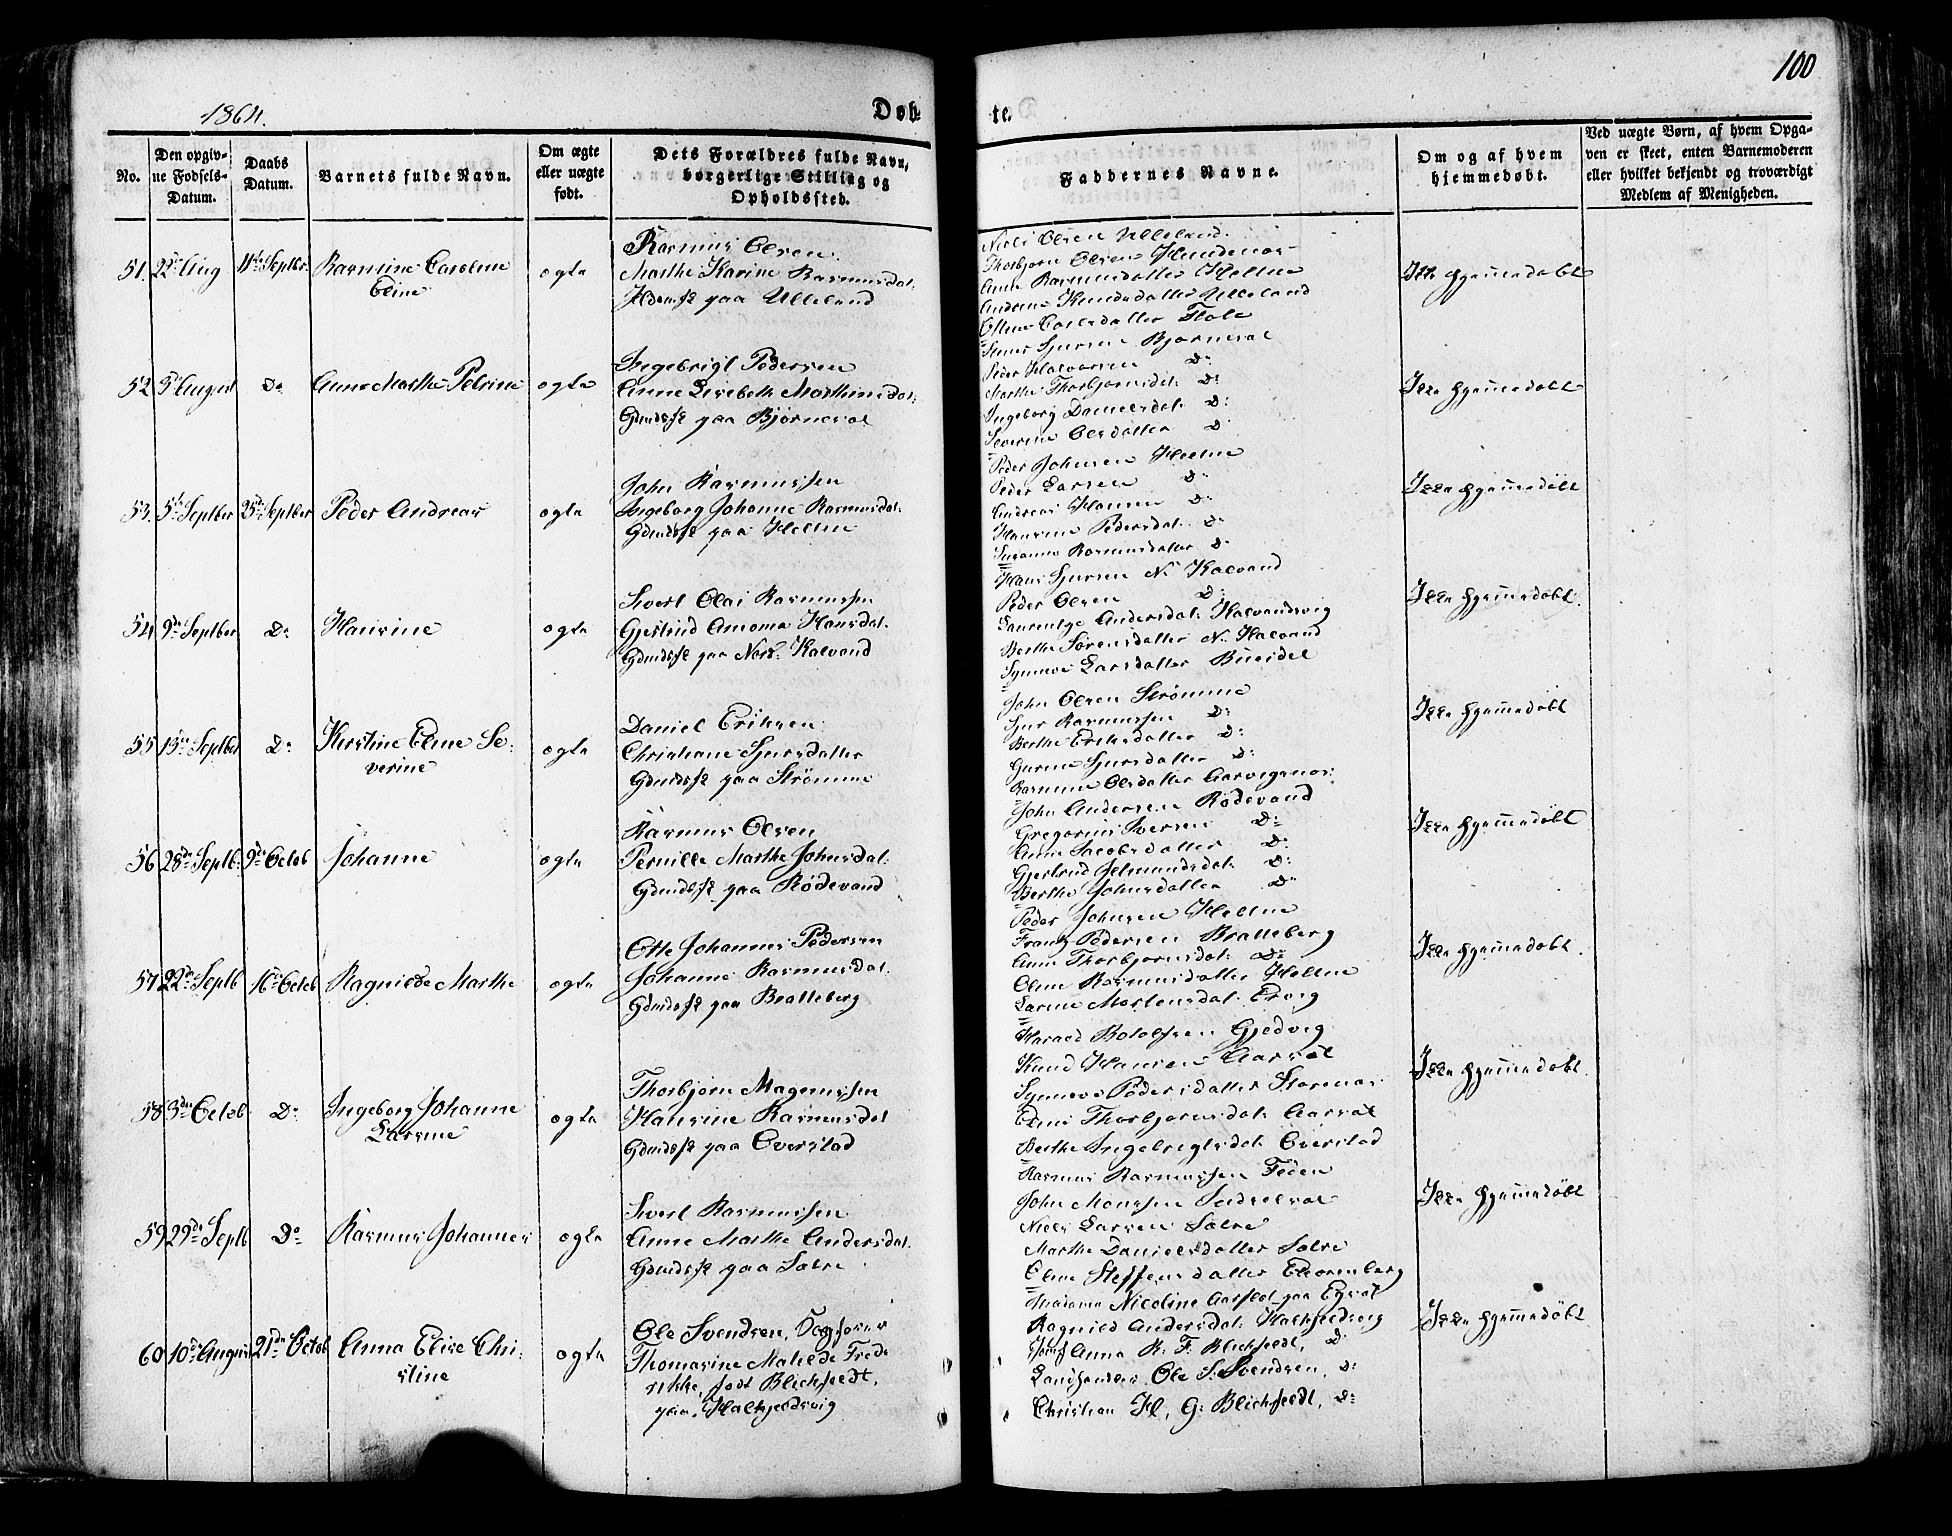 1864.
Døb-
te.
100
No.
Den opgiv-
ne Fødsels-
Datum.
Daabs
Datum.
Barnets fulde Navn.
Om ægte
eller uægte
født.
Dets Forældres fulde Navn,
borgerlige Stilling og
Opholdssted.
Faddernes Navne.
Om og af hvem
hjemmedøbt.
Ved uægte Børn, af hvem Opga-
ven er skeet, enten Barnemoderen
eller hvilket bekjendt og troværdigt
Medlem af Menigheden.
51. 22de Aug 11te Septbr. Rasmine Caroline
Eline
ægte
Rasmus Olsen
Marthe Karine Rasmusdat:
paa Ulleland
Niels Olsen Ulleland.
Thorbjørn Olsen
Anne Rasmusdatter Helle
Andrine Knudsdatter Ulleland
Oline Carlsdatter
Ikke hjemmedøbt
52. August Do Anne Marthe Petrine
ægte
Ingebrigt Pedersen
Anne Lisebeth Marthinsdat:
Gdmdsfk paa Bjørneval
Sjursen Bjørneval
Peder Halvorsen Do
Marthe Thorbjørnsdat: Do
Ingeborg Danielsdat: Do
Severine Olsdatter Do
Ikke hjemmedøbt
53. 5te Septber 25de Septber Peder Andreas
ægte
John Rasmussen
Ingeborg Johanne Rasmusdat:
Gdmdsfk paa Helle
Peder Johnsen Helle
Peder Larsen Do
Andreas Hansen Do
Hansine Pedersdat: Do
Susanne Rasmusdatter Do
Ikke hjemmedøbt
54. 9de Septber Do Hansine
ægte
Sivert Olai Rasmussen
Gjertrud Amoma Hansdat:
Gdmdsfk paa Nord: Kalvand
Hans Sjursen N: Kalvand
Peder Olsen Do
Laurentze Andersdat: Kalvandsvig
Berthe Sørensdatter N: Kalvand
Synneve Larsdatter
Ikke hjemmedøbt.
55 15de Septber Do Kirstine Eline Se-
verine
ægte
Daniel Eriksen
Christiane Sjursdatter
Gdmdsfk paa Strømme
John Olsen Strømme
Sjur Rasmussen Do
Berthe Eriksdatter Do
Gurine Sjursdatter Do
Rasmine Olsdatter
Ikke hjemmedøbt
56 28de Septb: 9de Octob Johanne
ægte
Rasmus Olsen
Pernille Marthe Johnsdat:
Gdmdsfk paa Rødevand
John Andersen Rødevand
Gregorius Iversen Do
Anne Jacobsdatter Do
Gjertrud Do
Berthe Johnsdatter Do
Ikke hjemmedøbt
57 22de Septb 16de Octob Ragnilde Marthe
ægte
Otte Johannes Pedersen
Johanne Rasmusdat:
Gdmdsfk paa Bratteberg
Peder Johnsen Helle
Frantz Pedersen Bratteberg
Anne Thorbjørnsdat: Do
Oline Rasmusdatter Helle
Larine Mortensdat: Ervig
Ikke hjemmedøbt.
58 3die Octob Do Ingeborg Johanne
Larsine
ægte
Thorbjørn Magnussen
Hansine Rasmusdat
Gdmdsfk paa Overstad
Harald Gjedvig
Knud Hansen Aarset
Synneve Pedersdatter
Eline Thorbjørnsdat: Aarset
Berthe Ingebrigtsdat: Overstad
Ikke hjemmedøbt.
59 29de Septb Do Rasmus Johannes
ægte
Sivert Rasmussen
Anne Marthe Andersdat.
Gdmdsfk paa Solre
Rasmus Rasmussen
John Monssen
Niels Larsen Solre
Marthe Danielsdatter Solre
Oline Steffensdatter
Ikke hjemmedøbt
60 10de August 21de Octob Anna Elise Chri-
stine
ægte
Ole Svendsen,
Thomasine Matilde Frede
rikke, født Blichfeldt,
paa, Halkjelsvig
Madame Nicoline Aarflot paa Egset
Ragnild Andersdat: Halkjelsvig
Jomf Anna K. F. Blichfeldt, Do
Landhandler Ole S. Svendsen, Do
Christian H, G: Blichfeldt, Do
Ikke hjemmedøbt